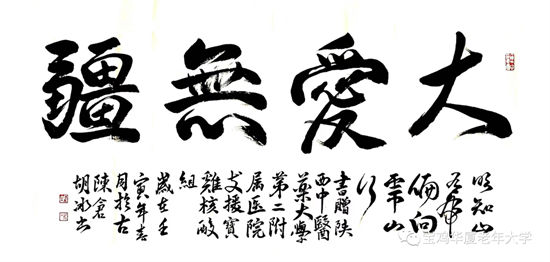 大愛無疆
明知山
有虎
偏向
虎山
行
書贈陝
西中醫
藥大學
第二附
属医院
支援寶
雞核酸
組
歲在壬
寅年春
月於古
陳倉
胡冰書
宝鸡华厦老年大学